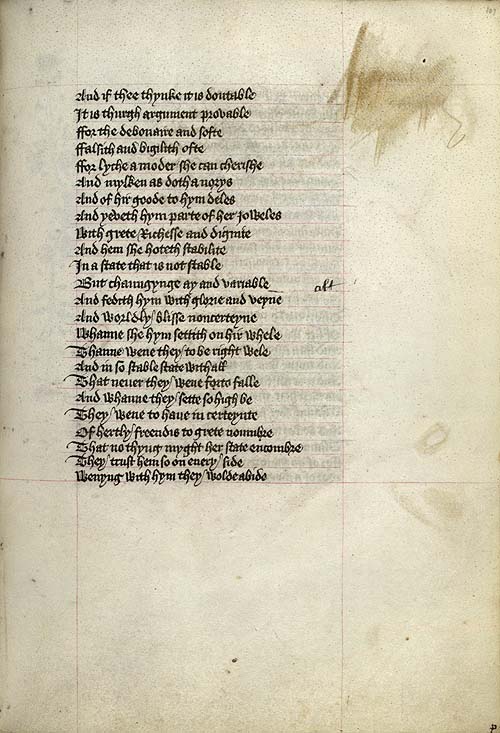 And if thee thynke it is doutable
It is thurgh argument provable
Ffor the debonaire and softe
Ffalsith and bigilith ofte
Ffor lyche a moder she can cherishe
And mylken as doth a norys
And of hir goode to hym deles
And yeveth hym parte of her Joweles
With grete Richesse and dignite
And hem she hoteth stabilite
In a state that is not stable
But chaungynge ay and variable
And fedith hym with glorie and veyne
And worldly blisse noncerteyne
Whanne she hym settith on hir whele
Thanne wene they to be right wele
And in so stable state withall
That never they wene forto falle
And whanne they sette so high be
They wene to have in certeynte
Of hertly freendis to grete noumbre
That no thyng myght her state encombre
They trust hem so on every side
Wenyng with hym they wolde abide